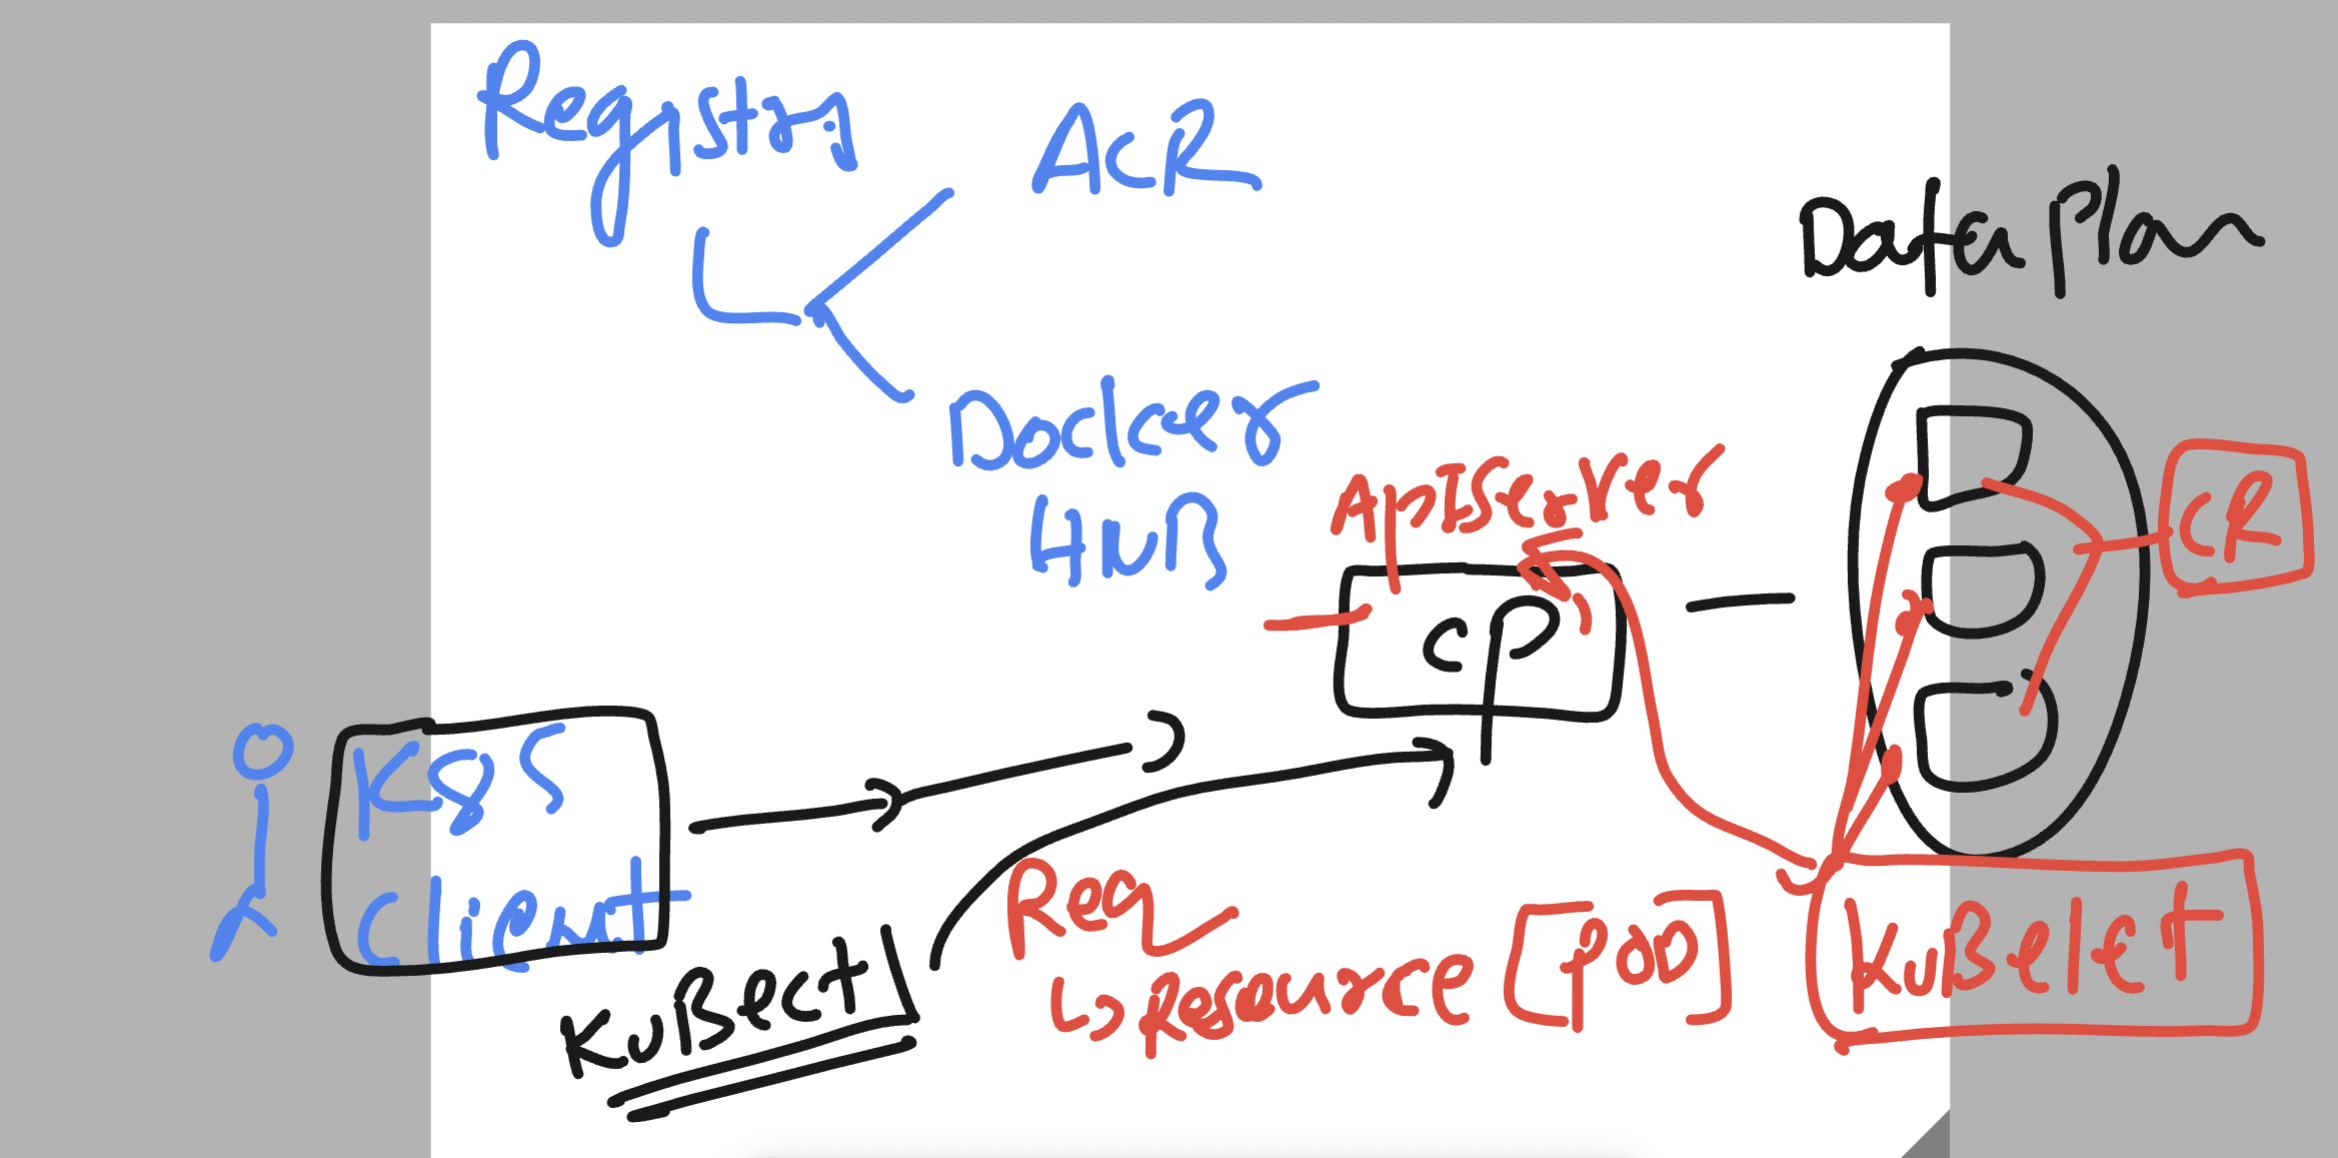 Registry
ACR
Docker
HUB
Data Plan
ApiServer
CP
CR
K8S
Client
KuBectl
Req
Resource [POD]
KuBelet